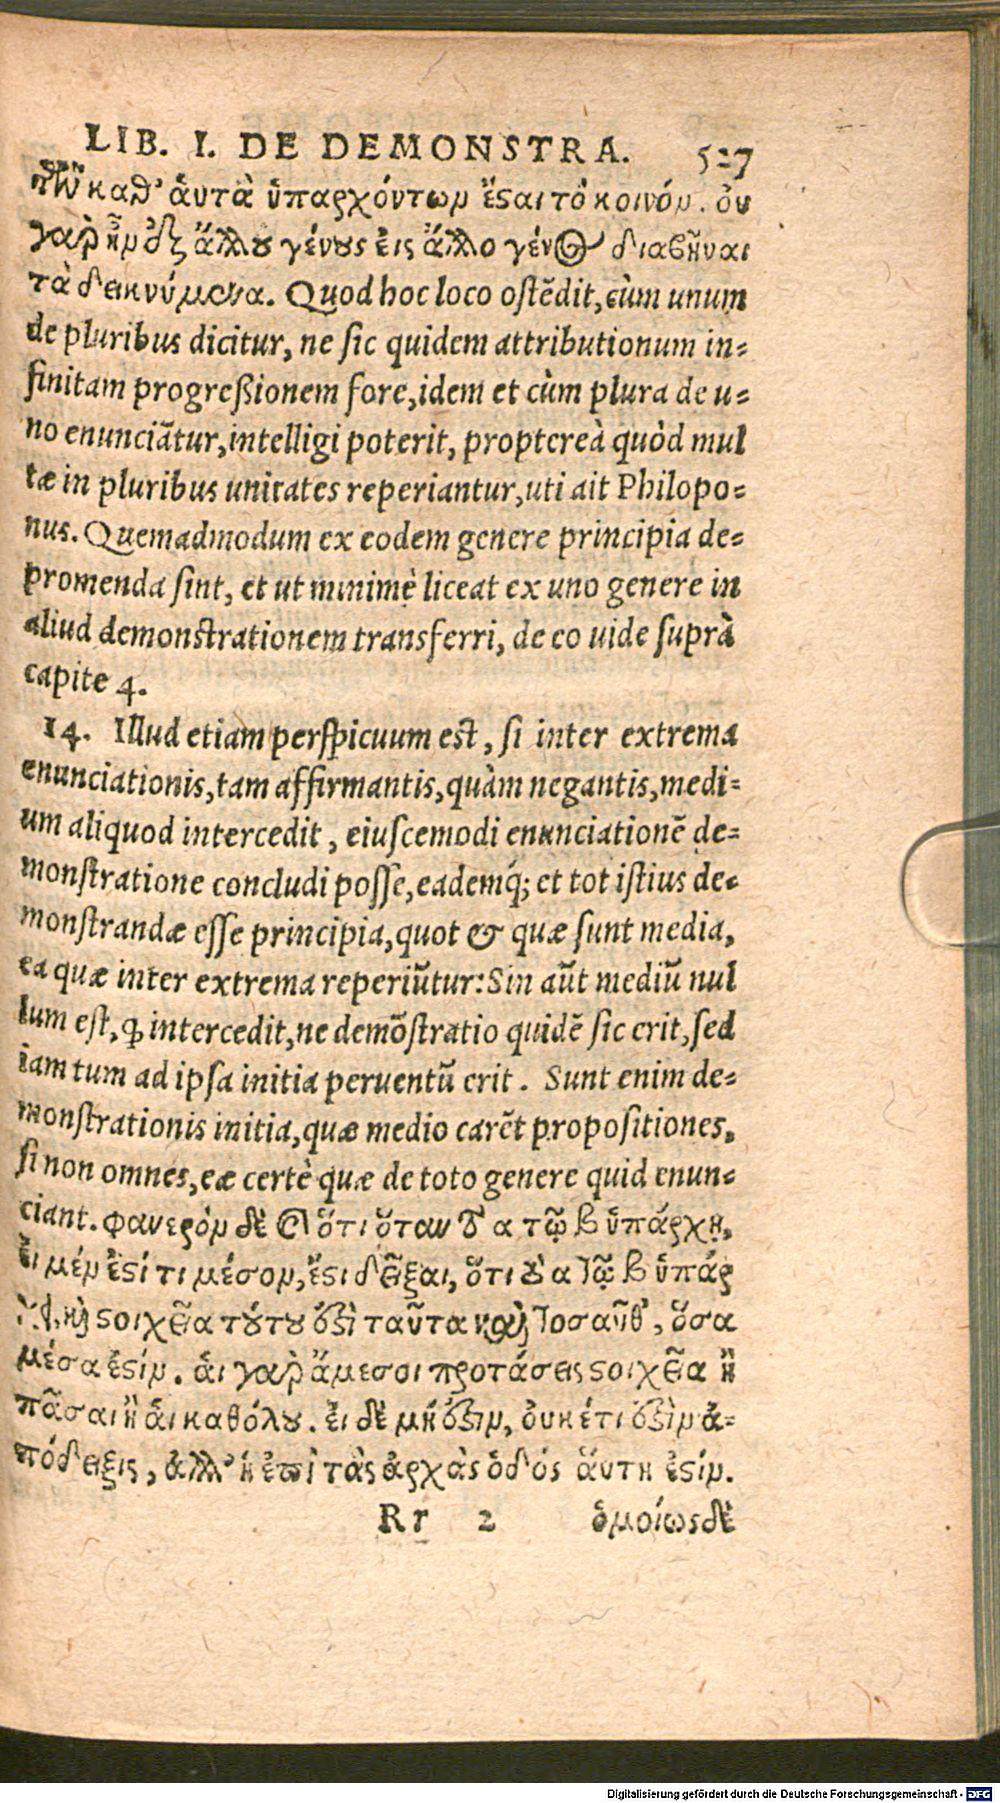 LIB. I. DE DEMONSTRA. 527
τῶν καθ' ἁυτὰ ὑπαρχόντων ἔσαι τὸ κοινόν. ὀυ
γαρ ἦν ἐξ ἄλλου γένους εἰς ἄλλο γένος διαβῆναι
τὰ δεικνύμενα. Quod hoc loco ostẽdit, cùm unum
de pluribus dicitur, ne sic quidem attributionum in-
finitam progreßionem fore, idem et cùm plura de u-
no enunciãtur, intelligi poterit, proptereà quòd mul
tæ in pluribus unitates reperiantur, uti ait Philopo-
nus. Quemadmodum ex eodem genere principia de-
promenda sint, et ut minimè liceat ex uno genere in
aliud demonstrationem transferri, de eo uide suprà
capite 4.
14. Illud etiam perspicuum est, si inter extrema
enunciationis, tam affirmantis, quàm negantis, medi-
um aliquod intercedit, eiuscemodi enunciationẽ de-
monstratione concludi posse, eademq́; et tot istius de-
monstrandæ esse principia, quot & quæ sunt media,
ea quæ inter extrema reperiũtur: Sin aũt mediũ nul
lum est, qđ intercedit, ne demõstratio quidẽ sic erit, sed
iam tum ad ipsa initia peruentũ erit. Sunt enim de-
monstrationis initia, quæ medio carẽt propositiones,
si non omnes, eæ certè quæ de toto genere quid enun-
ciant. φανερὸν δὲ καὶ ὅτι ὅταν τὸ α τῷ β ὑπάρχη,
ἐι μέν ἐστί τι μέσον, ἔστι δεῖξαι, ὅτι τὸ α τῷ β ὑπάρ
χει, καὶ στοιχεῖα τούτου ἐστὶ ταῦτα καὶ τοσαῦθ', ὅσα
μέσα ἐστίν. ἁι γαρ ἄμεσοι προτάσεις στοιχεῖα ἢ
πᾶσαι ἢ ἁι καθόλου. ἐι δὲ μή ἐστιν, ὀυκέτι ἐστὶν ἀ-
πόδειξις, ἀλλ' ἡ ἐπὶ τὰς ἀρχὰς ὁδός ἅυτη ἐστίν.
Rr 2 ὁμοίως δὲ
Digitalisierung gefördert durch die Deutsche Forschungsgemeinschaft - DFG